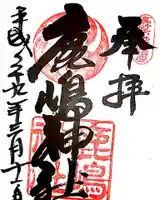 奉拝
鹿嶋神社
平成二十九年三月十二日